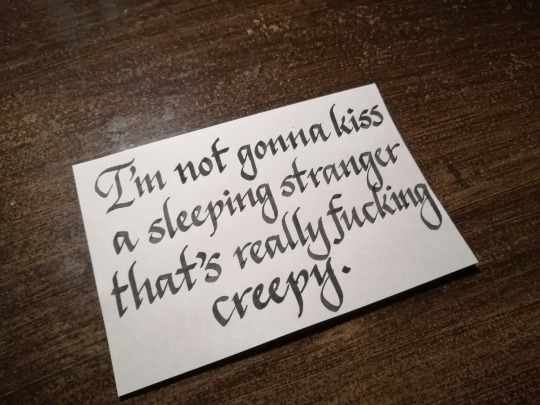 I'm not gonna kiss
a sleeping stranger
that's really fucking
creepy.